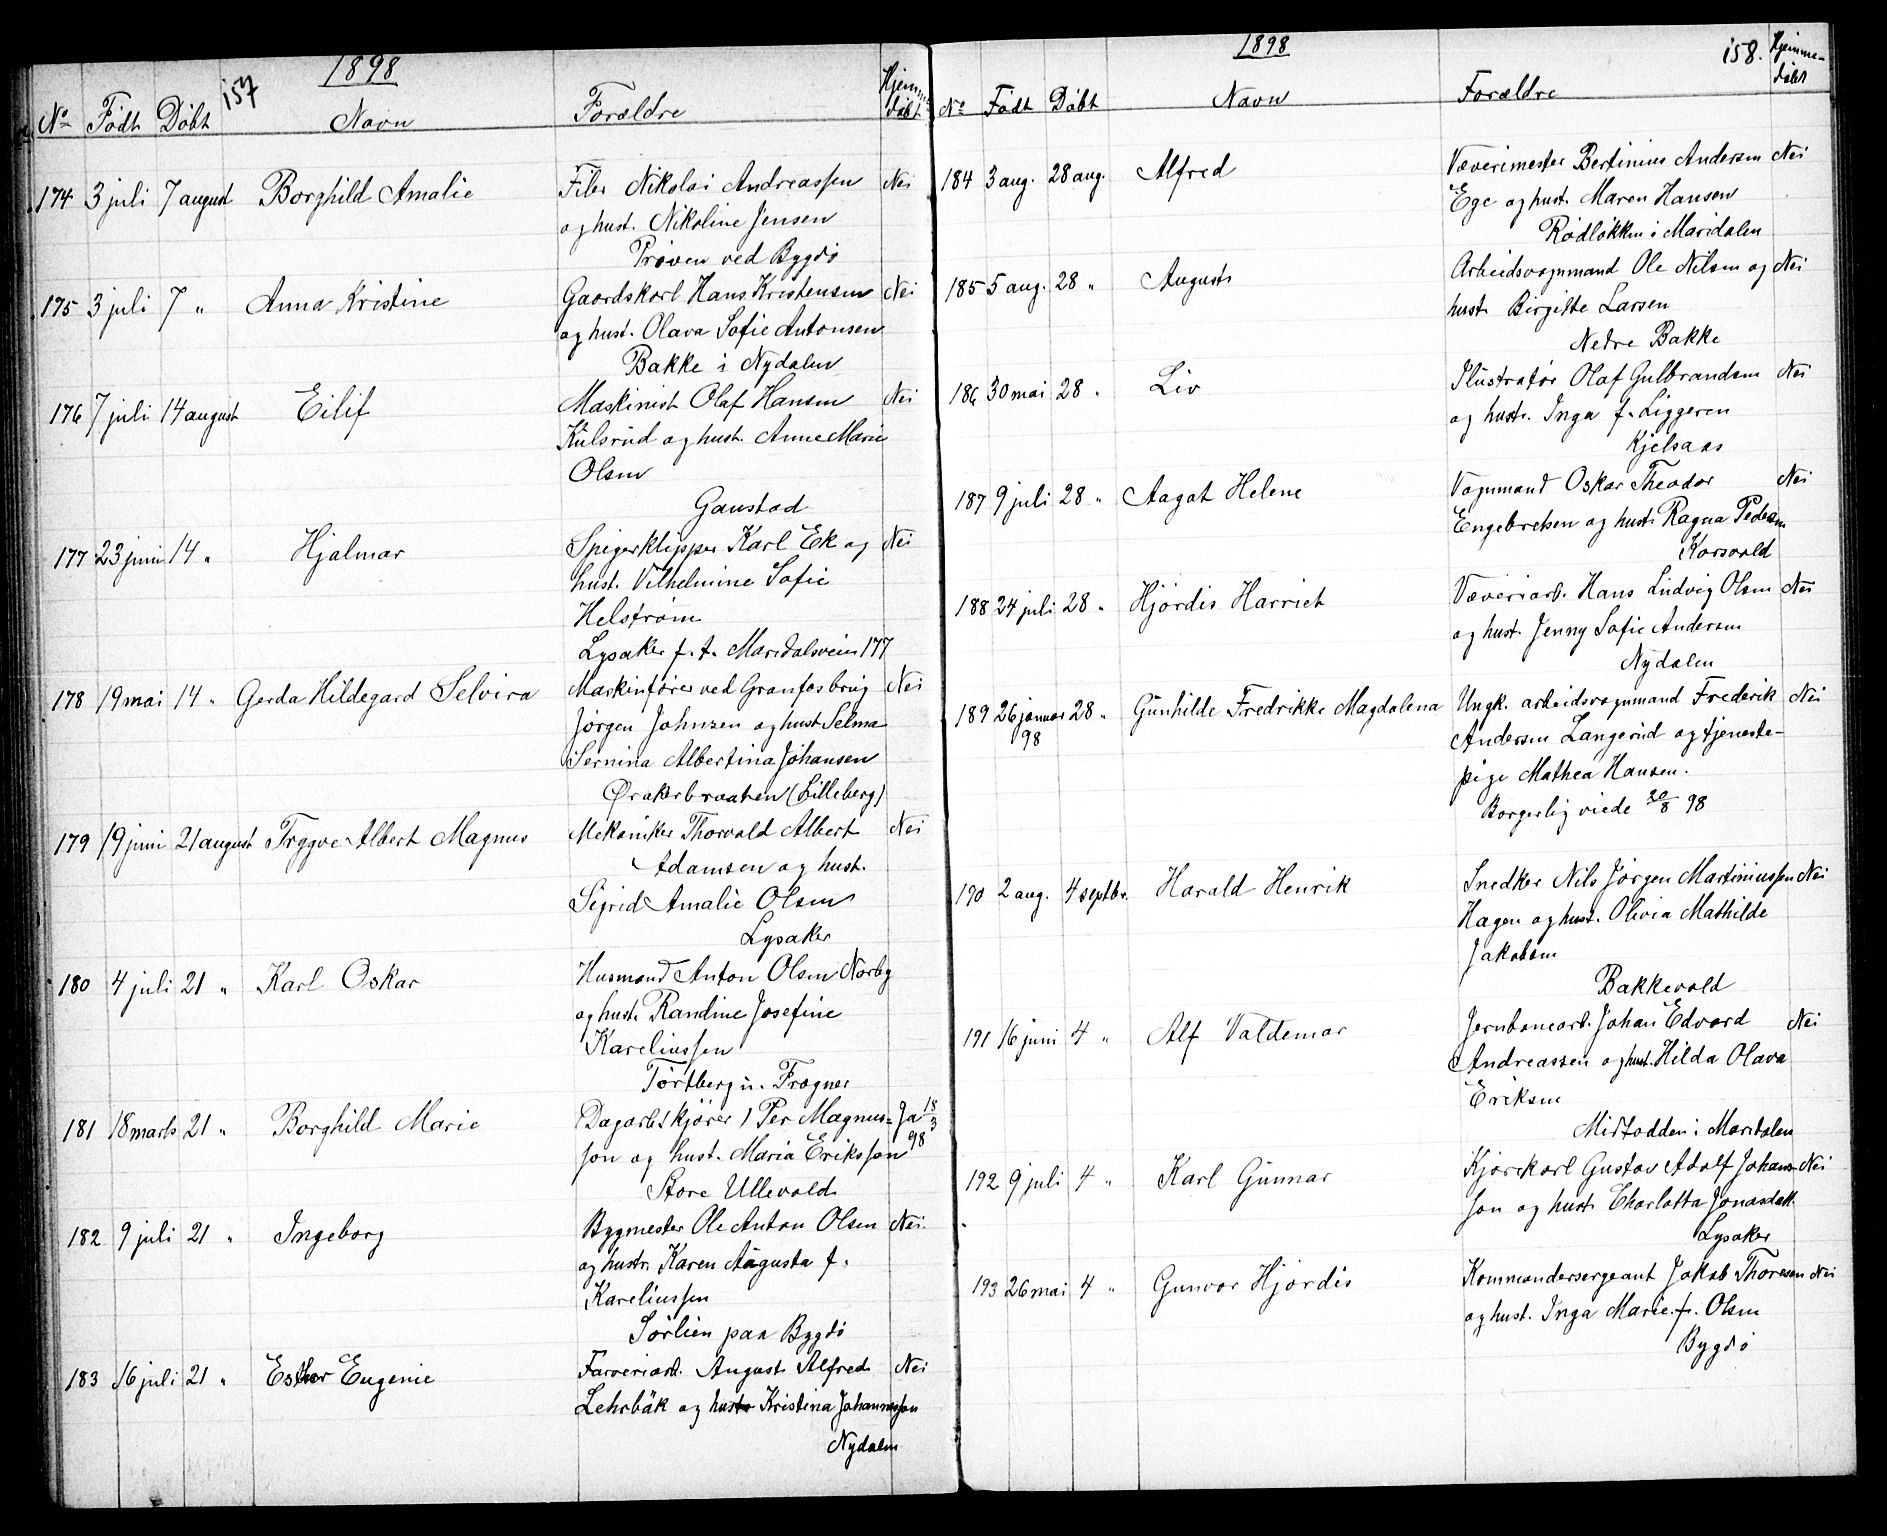 157 1898
No Født Døbt Navn Forældre Hjemmedøbt
174 3 juli 7 august Borghild Amalie Filer Nikolai Andreassen Nei
og hust. Nikoline Jensen
Prøven ved Bygdø
175 3 juli 7 " Anna Kristine Gaardskarl Hans Kristensen Nei
og hust. Olava Sofie Antonsen
Bakke i Nydalen
176 7 juli 14 august Eilif Maskinist Olaf Hansen Nei
Kulsrud og hust. Anne Marie
Olsen
Gaustad
177 23 juni 14 " Hjalmar Spigerklipper Karl Ek og Nei
hust. Vilhelmine Sofie
Helstrøm
Lysaker f. t. Maridalsveien 177
178 19 mai 14 " Gerda Hildegard Selvira Maskinfører ved Granfosbrug Nei
Jørgen Johnsen og hust Selma
Sernina Albertina Johansen
Ørakerbraaten (Lilleberg)
179 19 juni 21 august Trygve Albert Magnus Mekaniker Thorvald Albert Nei
Adamsen og hust.
Sigrid Amalie Olsen
Lysaker
180 4 juli 21 " Karl Oskar Husmand Anton Olsen Norby
og hust. Randine Josefine
Kareliussen
Tørtberg u. Frogner
181 18 marts 21 " Borghild Marie Dagarb. (kjører) Per Magnus= Ja 18/3
son og hust. Maria Eriksson 98
Store Ullevold
182 9 juli 21 " Ingeborg Bygmester Ole Anton Olsen Nei.
og hustr. Karen Augusta f.
Kareliussen
Sørlien paa Bygdø
183 16 juli 21 " Ester Eugenie Farveriarb. August Alfred Nei
Lehrbäk og hustr Kristina Johannesson
Nydalen
1898 158.
No Født Døbt Navn Forældre Hjemmedøbt
184 3 aug. 28 aug. Alfred Væverimester Bertinius Andersen Nei
Ege og hust. Maren Hansen
Rødløkken i Maridalen
185 5 aug. 28 " August Arbeidsvognmand Ole Nilsen og Nei
hust Birgitte Larsen
Nedre Bakke
186 30 mai 28 " Liv Ilustratør Olaf Gulbransen Nei
og hustr. Inga f. Liggeren
Kjelsaas
187 9 juli 28 " Aagot Helene Vognmand Oskar Theodor Nei
Engebretsen og hust. Ragna Pedersen
Korsvold
188 24 juli 28 " Hjørdis Harriet Væveriarb. Hans Ludvig Olsen Nei
og hust. Jenny Sofie Andersen
Nydalen
189 26 januar 28 " Gunhilde Fredrikke Magdalena Ungk. arbeidsvognmand Frederik Nei
98 Andersen Langerud og tjeneste-
pige Mathea Hansen.
Borgerlig viede 20/8 98
190 2 aug. 4 septbr. Harald Henrik Snedker Nils Jørgen Martiniussen Nei
Hagen og hust. Olivia Mathilde
Jakobsen
Bakkevold
191 16 juni 4 " Alf Valdemar Jernbanearb. Johan Edvard Nei
Andreassen og hust. Hilda Olava
Eriksen
Midtodden i Maridalen
192 9 juli 4 " Karl Gunnar Kjørekarl Gustav Adolf Johans- Nei
son og hust Charlotta Jonasdatt.
Lysaker
193 26 mai 4 " Gunvor Hjørdis Kommandersergeant Jakob Thoresen Nei
og hust. Inga Marie f. Olsen
Bygdø